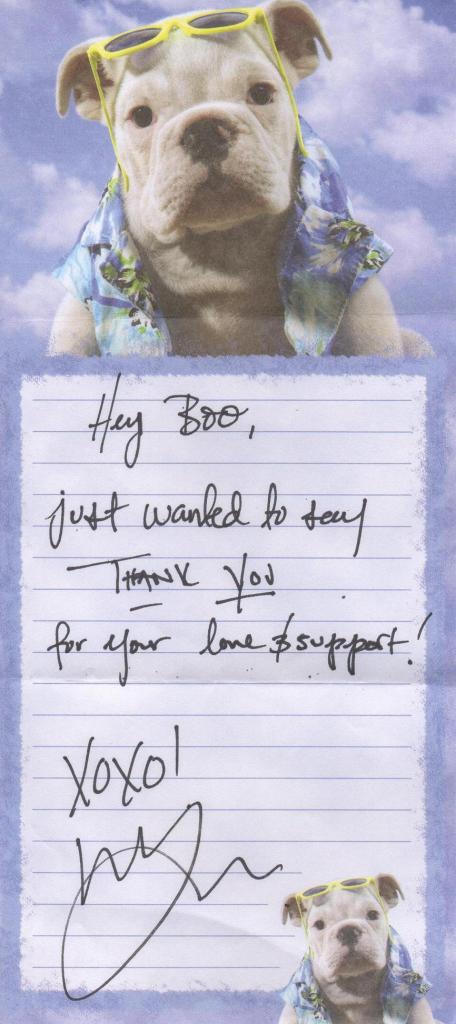 Hey Boo,
just wanted to say
THANK YOU
for your love & support!
XOXO!